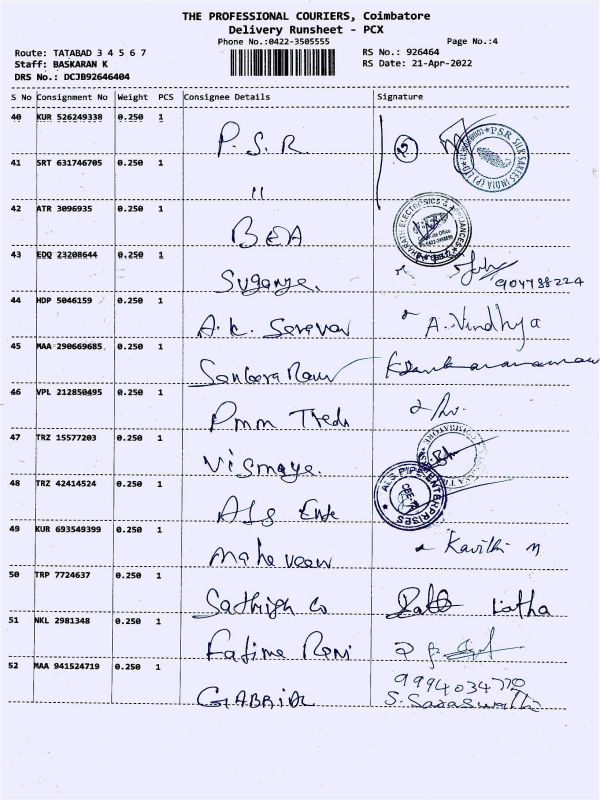 THE PROFESSIONAL COURIERS, Coimbatore
Delivery Runsheet - PCX
Phone No.:0422-3505555 Page No.:4
Route: TATABAD 3 4 5 6 7 RS No.: 926464
Staff: BASKARAN K RS Date: 21-Apr-2022
DRS No.: DCJB92646404
S No Consignment No Weight PCS Consignee Details Signature
40 KUR 526249338 0.250 1
P.S.R 2 PSR SILK SAREES INDIA (P) LTD
41 SRT 631746705 0.250 1
"
42 ATR 3096935 0.250 1
BEA BHARATH ELECTRONICS & APPLIANCES
43 EDQ 23208644 0.250 1
Suganya. 904788224
44 HDP 5046159 0.250 1
A.K. Saravan A. Vindhya
45 MAA 290669685. 0.250 1
Sankara Ram
46 VPL 212850495 0.250 1
Pmm
47 TRZ 15577203 0.250 1
Vismaya.
48 TRZ 42414524 0.250 1
ALS Ente ALS PIPE ENTERPRISES CBE
49 KUR 693549399 0.250 1
Maheveer Kavithi n
50 TRP 7724637 0.250 1
Sathish Co Latha
51 NKL 2981348 0.250 1
Fatima Remi
52 MAA 941524719 0.250 1
9994034770
GABRIAL S. Saraswathi